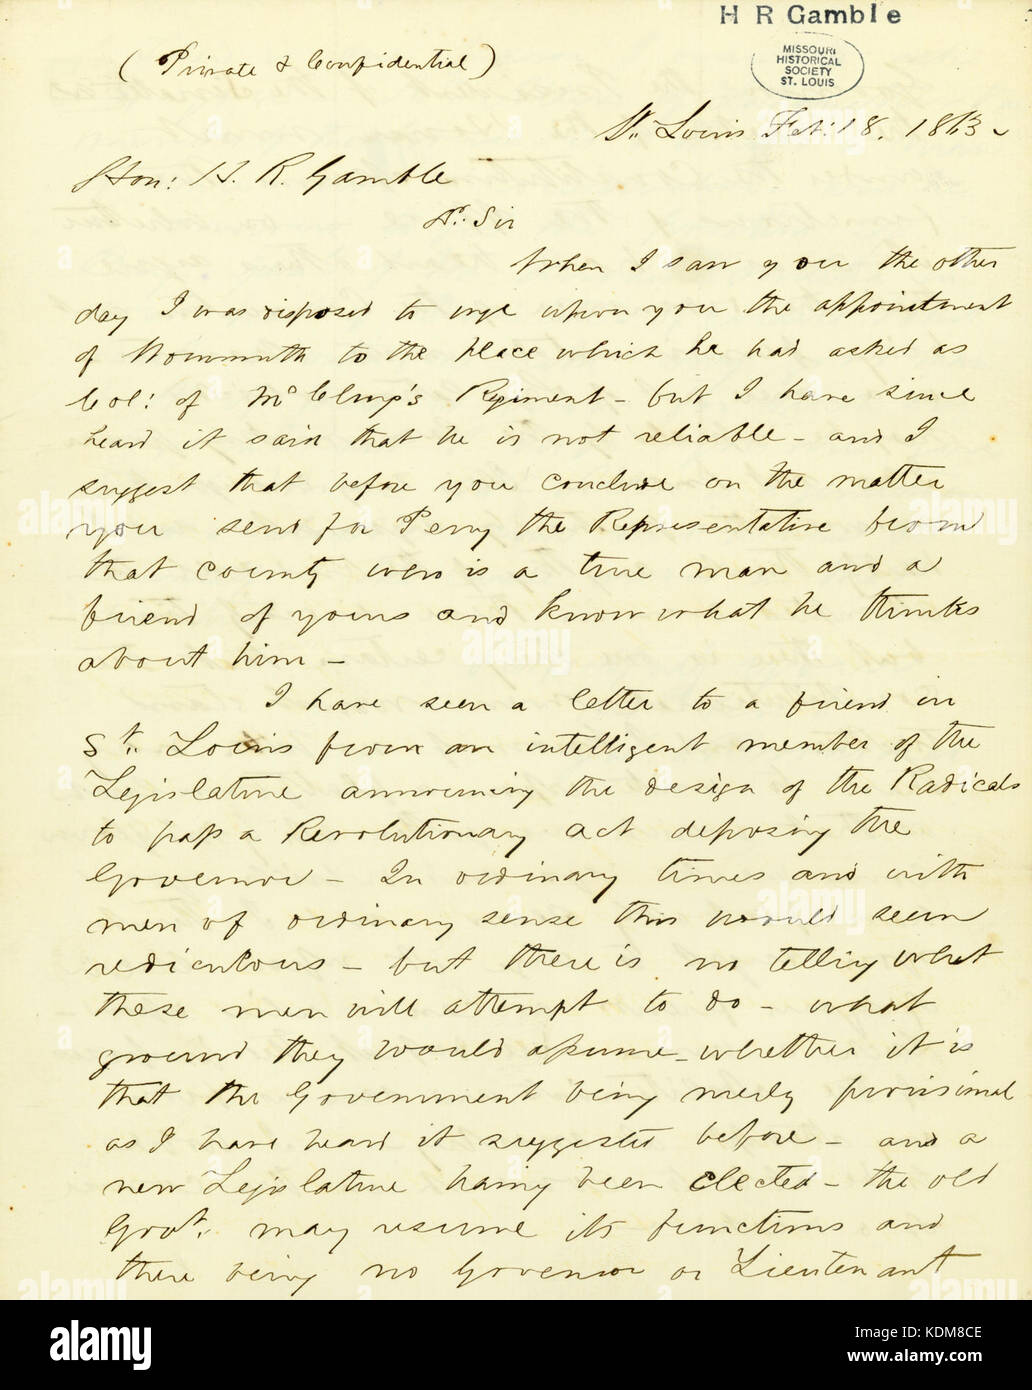 H R Gamble
MISSOURI
HISTORICAL
SOCIETY
ST. LOUIS
(Private & Confidential)
St. Louis Feb: 18. 1863
Hon: H. R. Gamble
Dr. Sir
When I saw you the other
day I was disposed to urge upon you the appointment
of to the place which he had asked as
Col: of McClurg's Regiment - but I have since
heard it said that he is not reliable - and I
suggest that before you conclude on the matter
you send for Perry the Representative from
that county who is a true man and a
friend of yours and know what he thinks
about him -
I have seen a letter to a friend in
St. Louis from an intelligent member of the
Legislature announcing the design of the Radicals
to pass a Revolutionary act deposing the
Governor - In ordinary times and with
men of ordinary sense this would seem
rediculous - but there is no telling what
these men will attempt to do - what
ground they would assume - whether it is
that the Government being merely provisional
as I have heard it suggested before - and a
new Legislature having been elected - the old
Govt. may resume its functions and
there being no Governor or Lieutenant
alamy
Image ID: KDM8CE
www.alamy.com